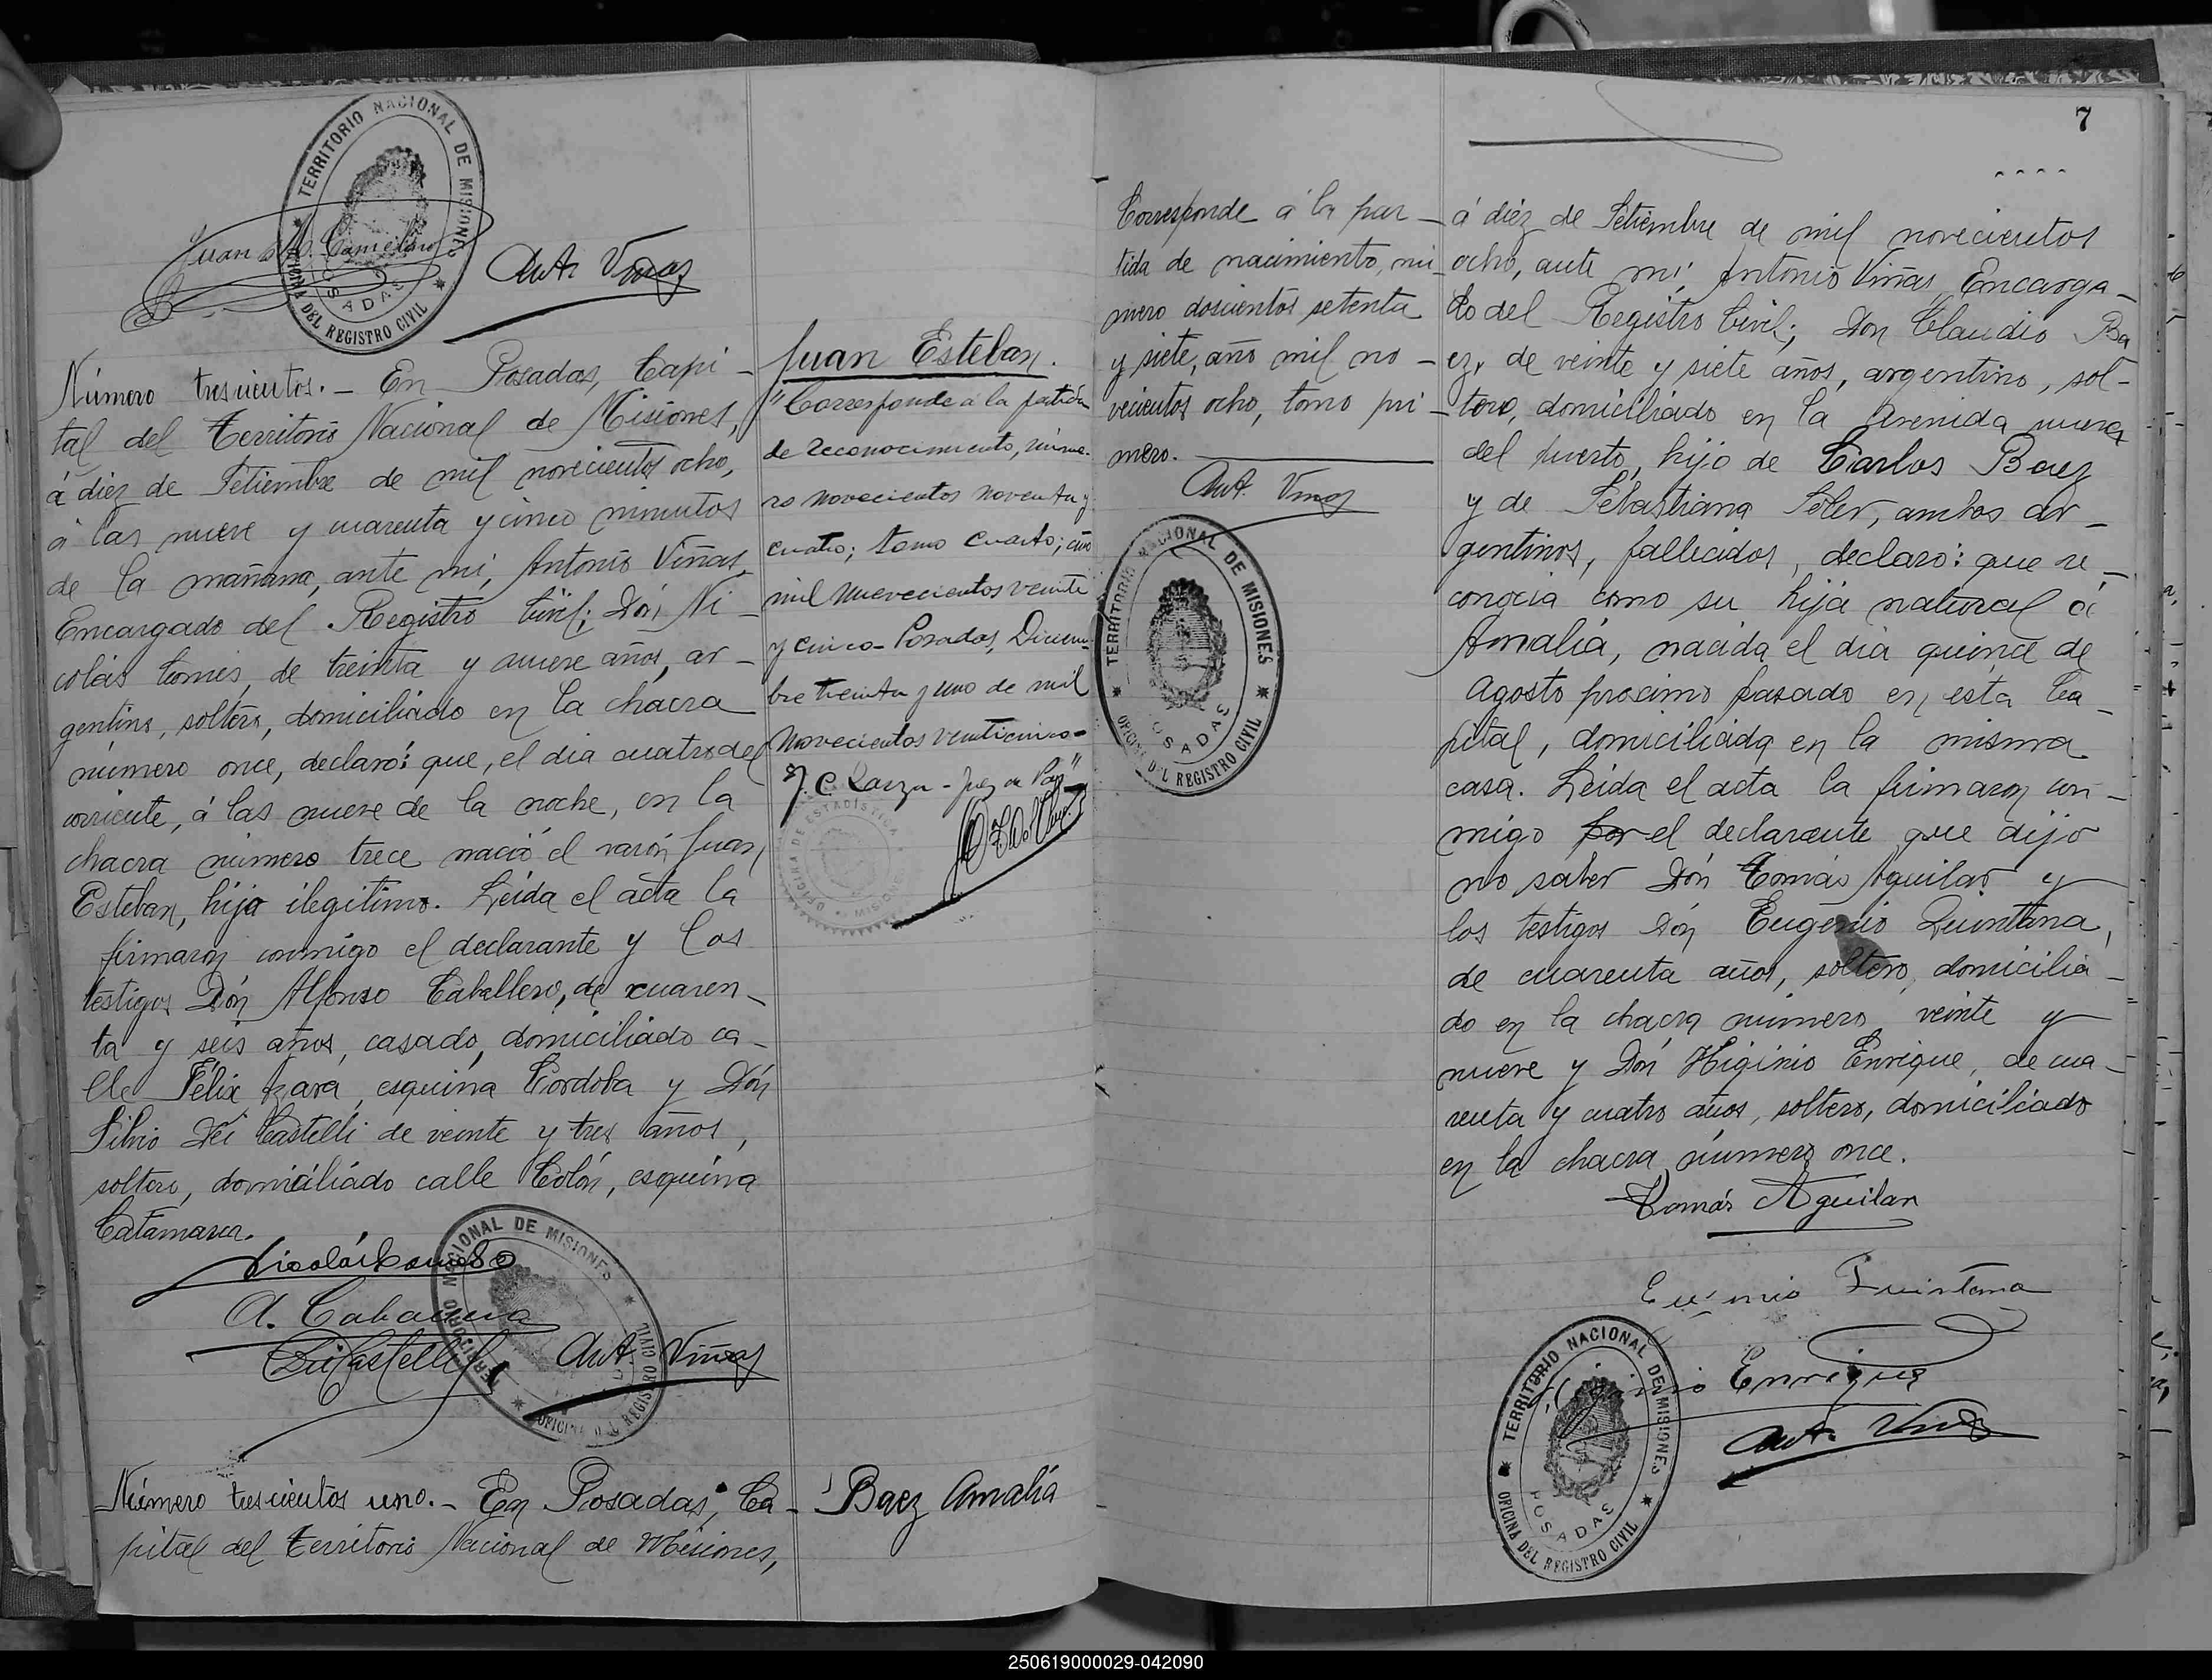 TERRITORIO NACIONAL DE MISIONES
POSADAS
OFICINA DEL REGISTRO CIVIL
Juan
Ant. Viñas
Número trescientos. - En Posadas, Capi-
tal del Territorio Nacional de Misiones,
á diez de Setiembre de mil novecientos ocho,
á las nueve y cuarenta y cinco minutos
de la mañana, ante mí, Antonio Viñas,
Encargado del Registro Civil; Dón Ni-
colás de treinta y nueve años, ar-
gentino, soltero, domiciliado en la chacra
número once, declaró: que, el dia cuatro del
corriente, á las nueve de la noche, en la
chacra número trece nació el varón Juan
Esteban, hijo ilegitimo. Leida el acta la
firmaron conmigo el declarante y los
testigos Dón Alfonso Caballero, de cuaren-
ta y seis años, casado, domiciliado ca-
lle Félix esquina Cordoba y Dón
Silvio Dei Castelli de veinte y tres años,
soltero, domiciliado calle Colón, esquina
Catamarca.
A.
DeiCastelli
Ant. Viñas
TERRITORIO NACIONAL DE MISIONES
OFICINA DEL REGISTRO CIVIL
Número trescientos uno. - En Posadas, Ca-
pital del Territorio Nacional de Misiones,
Juan Esteban.
"Corresponde a la partida
de reconocimiento, núme-
ro novecientos noventa y
cuatro; tomo cuarto; año
mil nuevecientos veinte
y cinco- Posadas, Diciem-
bre treinta y uno de mil
novecientos veinticinco-
J. C. Lanza - Juez de Paz"
OFICINA DE ESTADÍSTICA
MISIONES
Baez Amalia
Corresponde á la par-
tida de nacimiento, nú-
mero doscientos setenta
y siete, año mil no-
vecientos ocho, tomo pri-
mero.
Ant. Viñas
TERRITORIO NACIONAL DE MISIONES
POSADAS
OFICINA DEL REGISTRO CIVIL
7
á diez de Setiembre de mil novecientos
ocho, ante mí, Antonio Viñas, Encarga-
do del Registro Civil; Don Claudio Ba
ez, de veinte y siete años, argentino, sol-
tero, domiciliado en la Avenida nueva
del puerto, hijo de Carlos Baez
y de Sebastiana Soler, ambos ar-
gentinos, fallecidos, declaró: que re-
conocia como su hija natural á
Amalia, nacida el dia quince de
Agosto procsimo pasado en esta Ca-
pital, domiciliada en la misma
casa. Leida el acta la firmaron con-
migo por el declarante que dijo
no saber Dón Tomás Aguilar y
los testigos Dón Eugenio Quintana,
de cuarenta años, soltero, domicilia-
do en la chacra número veinte y
nueve y Dón Higinio Enrique, de cua-
renta y cuatro años, soltero, domiciliado
en la chacra número once.
Tomás Aguilar
Eugenio Quintana
Higinio Enrique
Ant. Viñas
TERRITORIO NACIONAL DE MISIONES
POSADAS
OFICINA DEL REGISTRO CIVIL
250619000029-042090